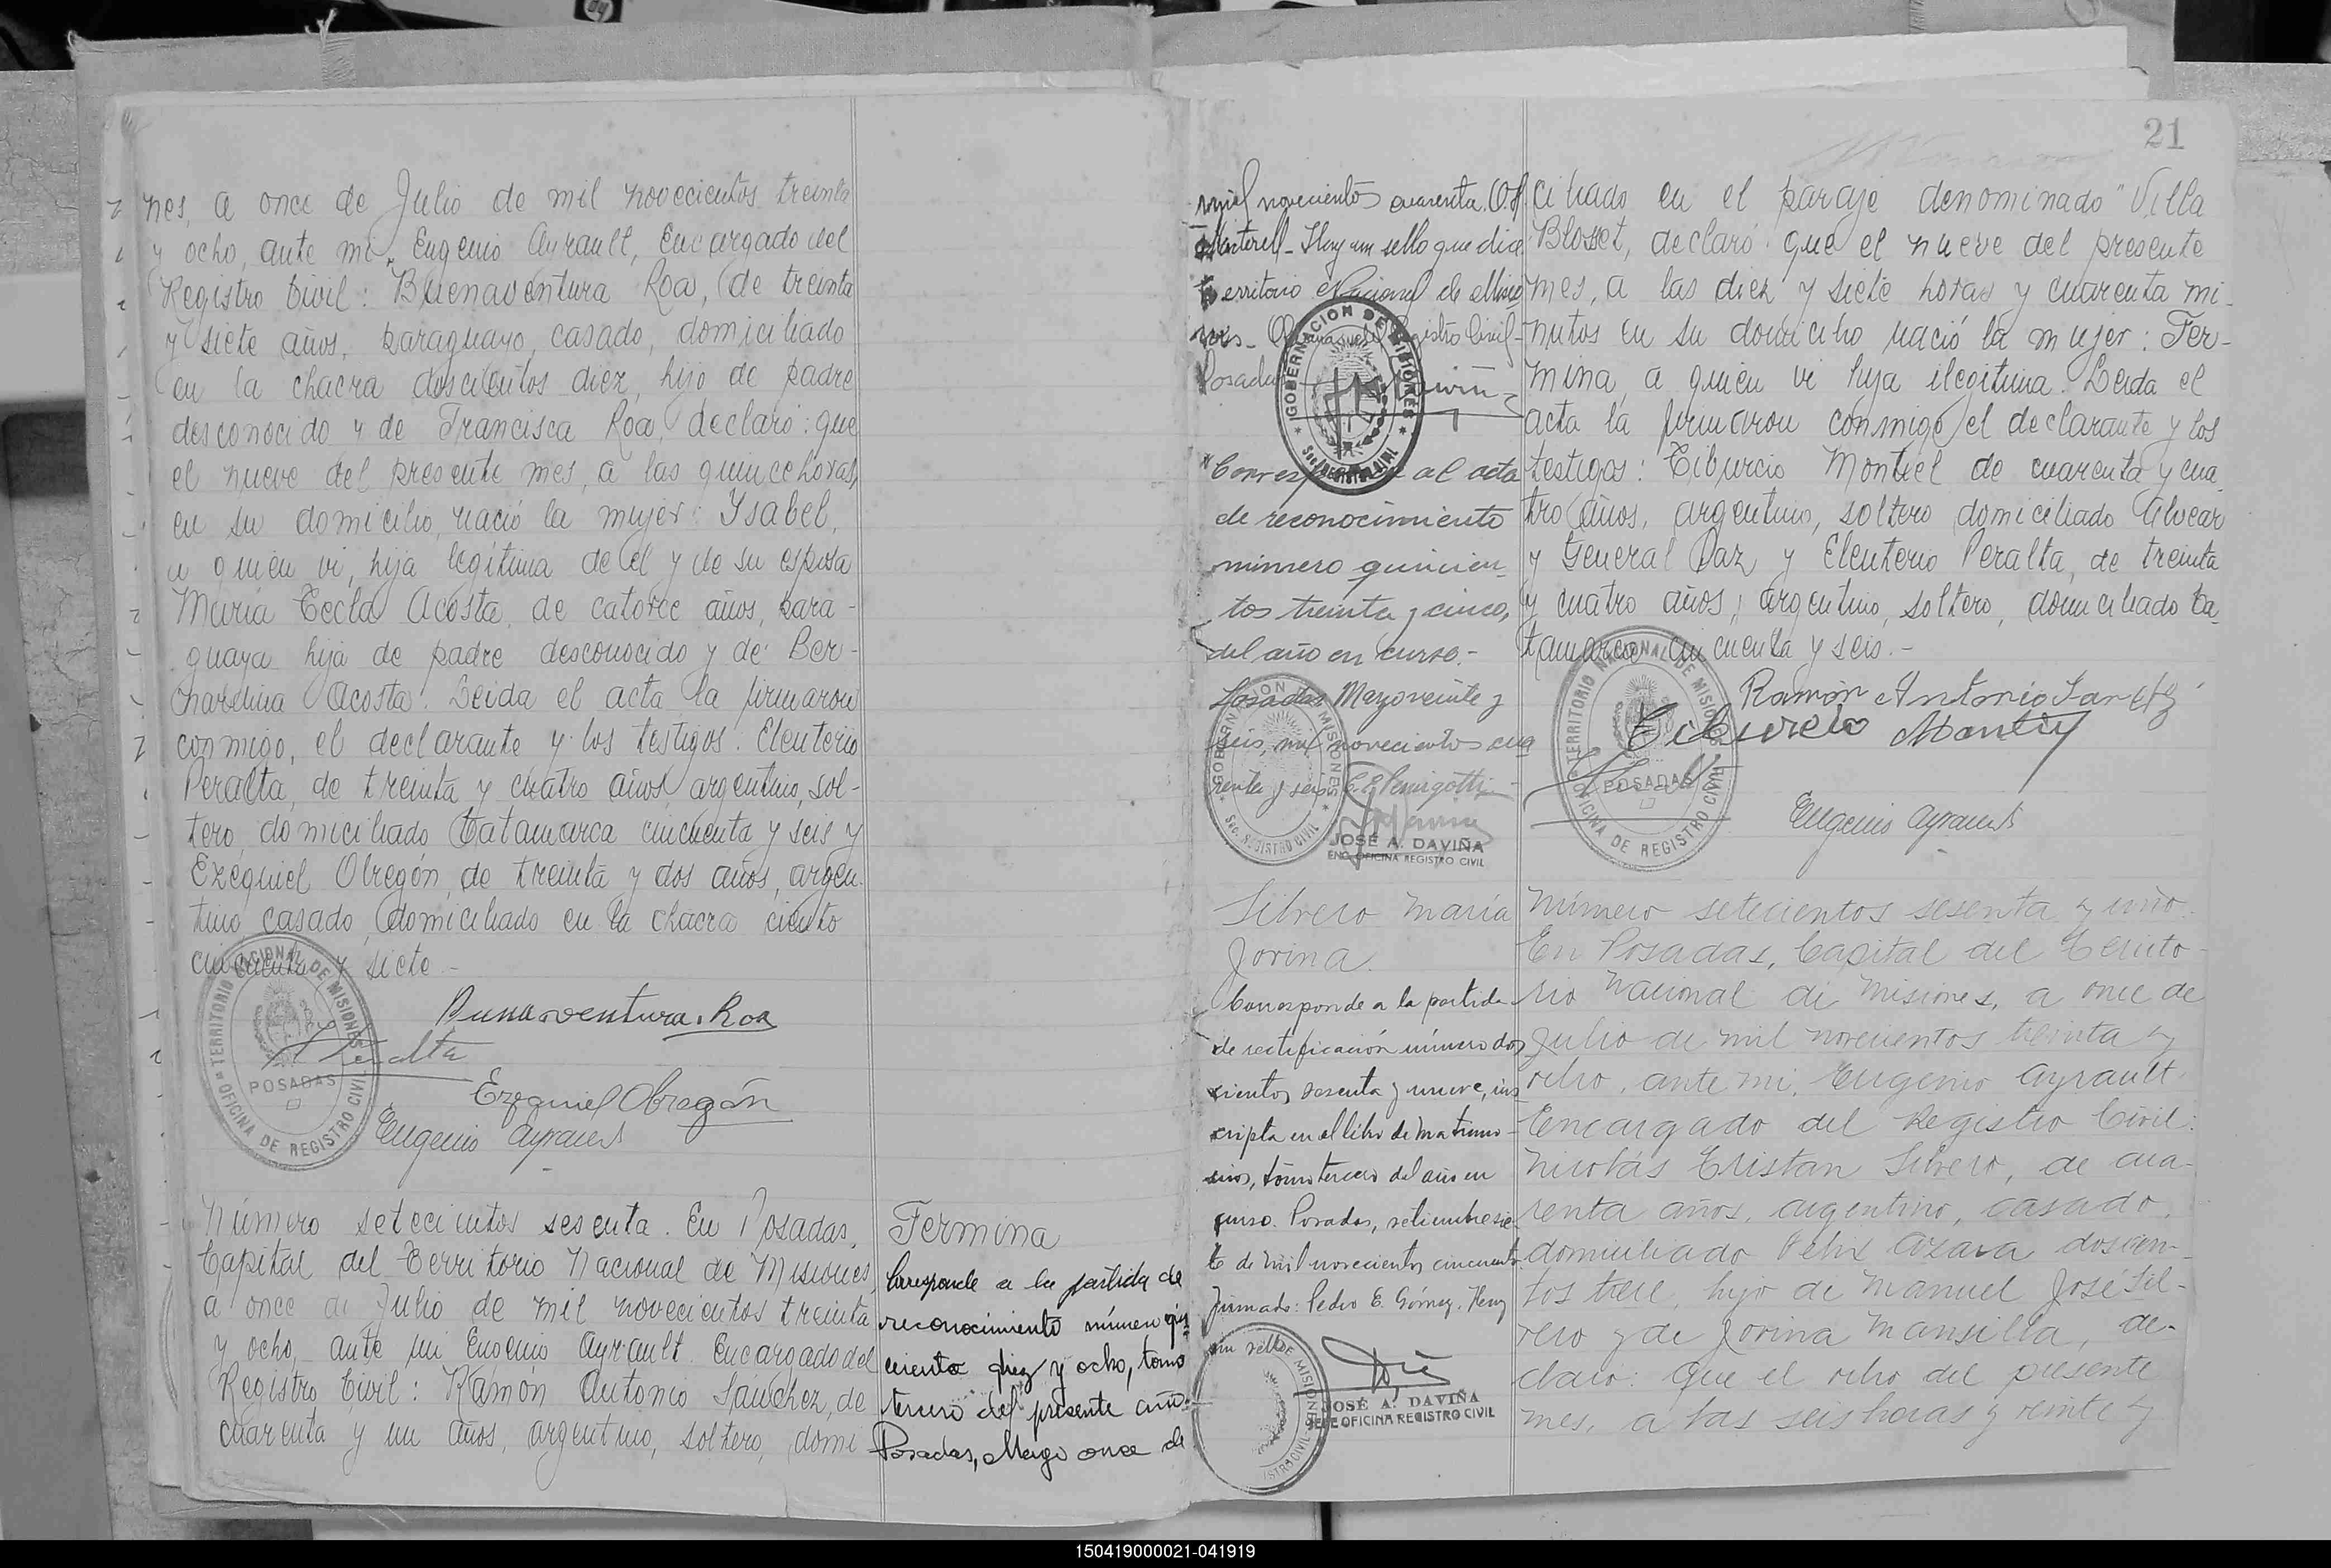 nes, a once de Julio de mil novecientos treinta
y ocho, ante mi, Eugenio Ayrault, Encargado del
Registro Civil: Buenaventura Roa, de treinta
y siete años, paraguayo, casado, domiciliado
en la chacra doscientos diez, hijo de padre
desconocido y de Francisca Roa, declaró: que
el nueve del presente mes, a las quince horas,
en su domicilio, nació la mujer: Ysabel,
a quien vi, hija legítima de él y de su esposa
María Tecla Acosta, de catorce años, para-
guaya hija de padre desconocido y de Ber-
nardina Acosta. Leida el acta la firmaron
conmigo, el declarante y los testigos: Eleuterio
Peralta, de treinta y cuatro años, argentino, sol-
tero, domiciliado Catamarca cincuenta y seis y
Ezequiel Obregón, de treinta y dos años, argen-
tino, casado, domiciliado en la chacra ciento
cincuenta y siete.-
Buenaventura Roa
Peralta
Ezequiel Obregón
Eugenio Ayrault
TERRITORIO NACIONAL DE MISIONES
POSADAS
OFICINA DE REGISTRO CIVIL
Número setecientos sesenta. En Posadas,
Capital del Territorio Nacional de Misiones,
a once de Julio de mil novecientos treinta
y ocho, ante mi Eugenio Ayrault Encargado del
Registro Civil: Ramón Antonio Sánchez, de
cuarenta y un años, argentino, soltero, domi
Fermina
Corresponde a la partida de
reconocimiento número qui
nientos diez y ocho, tomo
tercero del presente año.
Posadas, Mayo once de
21
mil novecientos cuarenta.
Hay un sello que dice
Territorio Nacional de Misio
nes- Oficina del Registro Civil-
Posadas
GOBERNACION DE MISIONES
Sec. REGISTRO CIVIL
Corresponde al acta
de reconocimiento
número quinien-
tos treinta y cinco,
del año en curso.-
Posadas Mayo veinte y
seis, mil novecientos cua
renta y seis
GOBERNACION DE MISIONES
Sec. REGISTRO CIVIL
JOSÉ A. DAVIÑA
ENC. OFICINA REGISTRO CIVIL
ciliado en el paraje denominado "Villa
Blosset, declaró: que el nueve del presente
mes, a las diez y siete horas y cuarenta mi-
nutos en su domicilio nació la mujer: Fer-
mina, a quien vi hija ilegítima. Leida el
acta la firmaron conmigo el declarante y los
testigos: Tiburcio Montiel de cuarenta y cua
tro años, argentino, soltero domiciliado Alvear
y General Paz y Eleuterio Peralta, de treinta
y cuatro años, argentino, soltero, domiciliado Ca
tamarca cincuenta y seis.-
Ramón Antonio Sanchez
Tiburcio Montiel
Eugenio Ayrault
TERRITORIO NACIONAL DE MISIONES
POSADAS
OFICINA DE REGISTRO CIVIL
Silvero María
Jovina.
Corresponde a la partida
de rectificación número dos
cientos sesenta y nueve, ins
cripta en el libro de matrimo-
nios, tomo tercero del año en
curso. Posadas, setiembre sie
te de mil novecientos cincuenta
Firmado: Pedro E. Gómez. Hay
un sello
JOSÉ A. DAVIÑA
JEFE OFICINA REGISTRO CIVIL
Número setecientos sesenta y uno.
En Posadas, Capital del Territo-
rio Nacional de Misiones, a once de
Julio de mil novecientos treinta y
ocho, ante mi, Eugenio Ayrault
Encargado del Registro Civil:
Nicolás Tristan Silvero, de cua-
renta años, argentino, casado,
domiciliado Félix Azara doscien-
tos trece, hijo de Manuel José Sil-
vero y de Jovina Mansilla, de-
claró: Que el ocho del presente
mes, a las seis horas y veinte y
150419000021-041919